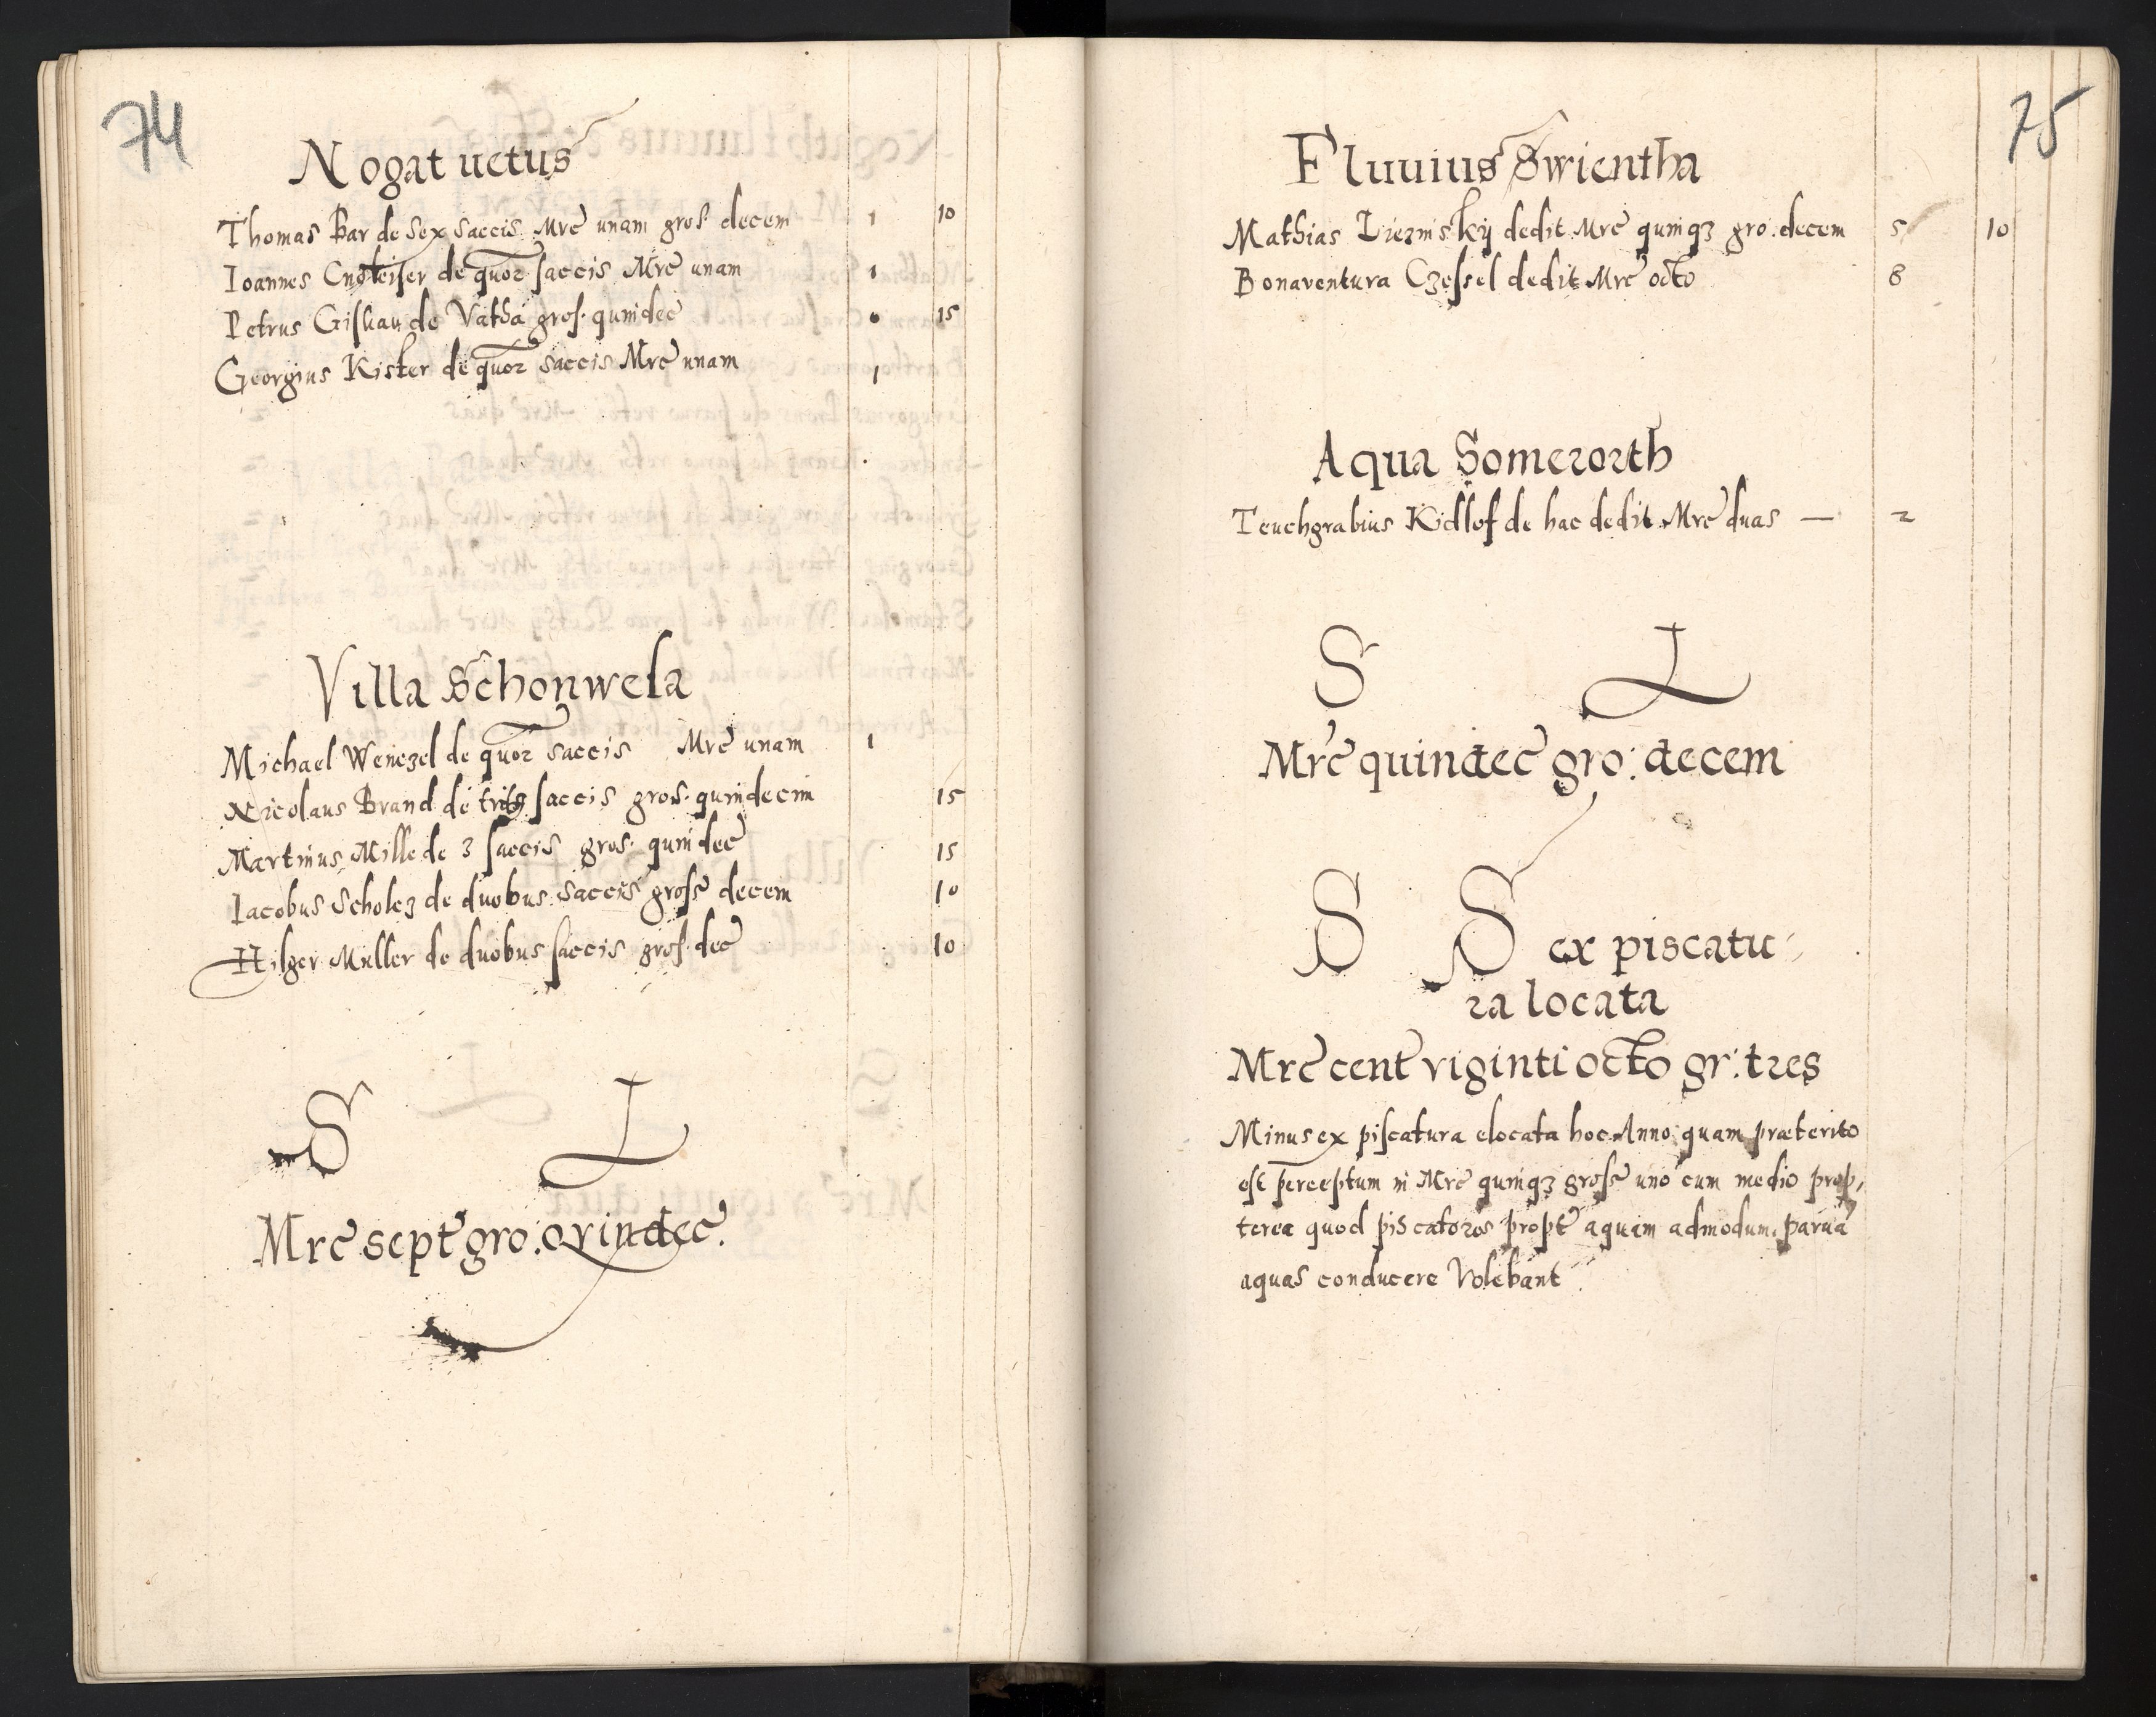 74
Nogat uetus
Thomas Bar de Sex saccis Mrc̃ unam gros. decem 1 10
Ioannes Cnoteiser de quor saccis Mrc̃ unam 1
Petrus Gisuau de Vatha gros. quindec̃ 0 15
Georgius Kister de quor saccis Mrc̃ unam 1
Villa Schonwesa
Michael Wenczel de quor saccis Mrc̃ unam 1
Nicolaus Brand de saccis gros. quindecim 15
Martinus Mille de 3 saccis gros. quindec̃ 15
Iacobus Scholcz de duobus saccis gross̃ decem 10
Hilger Muller de duobus saccis gros. dec̃ 10
S L
Mrc̃ sept̃ gro: qvindec̃.
75
Fluuius Swientha
Mathias dedit Mrc̃ quinqz gro. decem 5 10
Bonaventura Czessel dedit Mrc̃ octo 8
Aqua Somerorth
Teuchgrabius Kidlof de hac dedit Mrc̃ duas — 2
S L
Mrc̃ quindec̃ gro: decem
S S ex piscatu-
ra locata
Mrc̃ cent̃ viginti octo gr: tres
Minus ex piscatura elocata hoc Anno quam præterito
est perceptum in Mrc̃ quinqz gross̃ uno cum medio prop,
terea quod piscatores propt̃ aquam admodum paruã
aquas conducere Nolebant